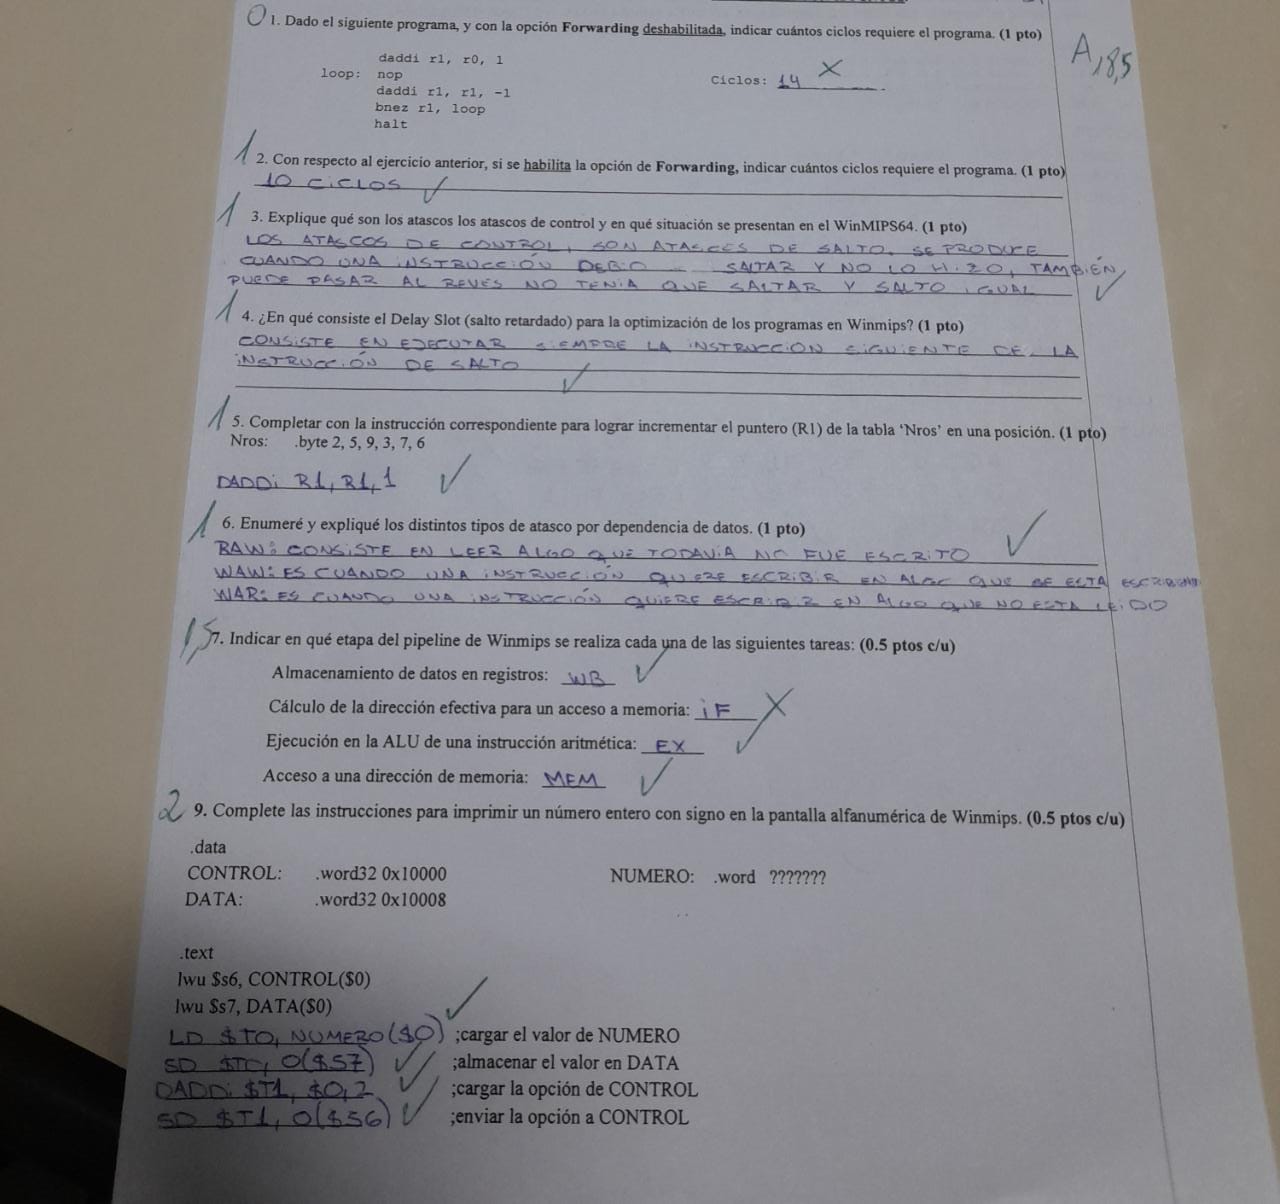 0 1. Dado el siguiente programa, y con la opción Forwarding deshabilitada, indicar cuántos ciclos requiere el programa. (1 pto)
A, 8,5
daddi r1, r0, 1
loop: nop
Ciclos: 14 X
daddi r1, r1, -1
bnez r1, loop
halt
1 2. Con respecto al ejercicio anterior, si se habilita la opción de Forwarding, indicar cuántos ciclos requiere el programa. (1 pto)
10 CICLOS
1 3. Explique qué son los atascos los atascos de control y en qué situación se presentan en el WinMIPS64. (1 pto)
LOS ATASCOS DE CONTROL, SON ATASCOS DE SALTO. SE PRODUCE
CUANDO UNA INSTRUCCIÓN DEBIO SALTAR Y NO LO HIZO, TAMBIÉN
PUEDE PASAR AL REVES NO TENIA QUE SALTAR Y SALTO IGUAL
1 4. ¿En qué consiste el Delay Slot (salto retardado) para la optimización de los programas en Winmips? (1 pto)
CONSISTE EN EJECUTAR SIEMPRE LA INSTRUCCION SIGUIENTE DE LA
INSTRUCCIÓN DE SALTO
1 5. Completar con la instrucción correspondiente para lograr incrementar el puntero (R1) de la tabla ‘Nros’ en una posición. (1 pto)
Nros: .byte 2, 5, 9, 3, 7, 6
DADDi R1, R1, 1
1 6. Enumeré y expliqué los distintos tipos de atasco por dependencia de datos. (1 pto)
RAW: CONSISTE EN LEER ALGO QUE TODAVIA NO FUE ESCRITO
WAW: ES CUANDO UNA INSTRUCCIÓN QUIERE ESCRIBIR EN ALGO QUE SE ESTA ESCRIBIENDO
WAR: ES CUANDO UNA INSTRUCCIÓN QUIERE ESCRIBIR EN ALGO QUE NO ESTA LEIDO
1,5 7. Indicar en qué etapa del pipeline de Winmips se realiza cada una de las siguientes tareas: (0.5 ptos c/u)
Almacenamiento de datos en registros: WB
Cálculo de la dirección efectiva para un acceso a memoria: iF X
Ejecución en la ALU de una instrucción aritmética: EX
Acceso a una dirección de memoria: MEM
2 9. Complete las instrucciones para imprimir un número entero con signo en la pantalla alfanumérica de Winmips. (0.5 ptos c/u)
.data
CONTROL: .word32 0x10000 NUMERO: .word ???????
DATA: .word32 0x10008
.text
lwu $s6, CONTROL($0)
lwu $s7, DATA($0)
LD $T0, NUMERO($0) ;cargar el valor de NUMERO
SD $T0, 0($S7) ;almacenar el valor en DATA
DADDi $T1, $0, 2 ;cargar la opción de CONTROL
SD $T1, 0($S6) ;enviar la opción a CONTROL